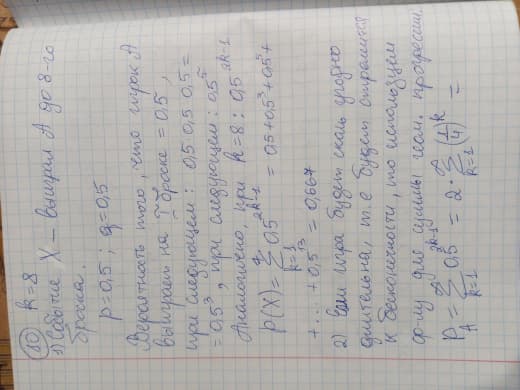 10 k=8
1) Событие X – выиграл А до 8-го
броска.
p=0,5 ; q=0,5
Вероятность того, что игрок А
выиграет на I броске = 0,5 ,
при следующем: 0,5 0,5 0,5 =
= 0,5³, при следующем: 0,5⁵
Аналогично, при k=8: 0,5²ᵏ⁻¹
P(X) = ∑ 0,5²ᵏ⁻¹ = 0,5+0,5³+0,5⁵+
k=1
+ ... + 0,5¹³ = 0,667
2) Если игра будет сколь угодно
длительна, т.е будет стремится
к бесконечности, то используем
ф-лу для суммы геом. прогрессии.
P_A = ∑ 0,5²ᵏ⁻¹ = 2 · ∑ (1/4)ᵏ =
∞ k=1 ∞ k=1